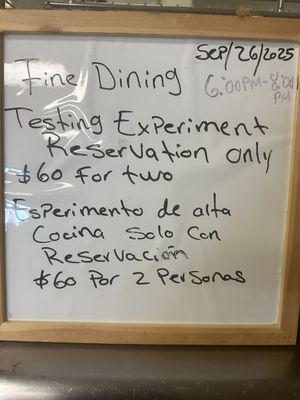 Sep/26/2025
Fine Dining
6:00PM-8:00
PM
Testing Experiment
Reservation only
$60 for two
Esperimento de alta
Cocina Solo Con
Reservación
$60 Por 2 Personas